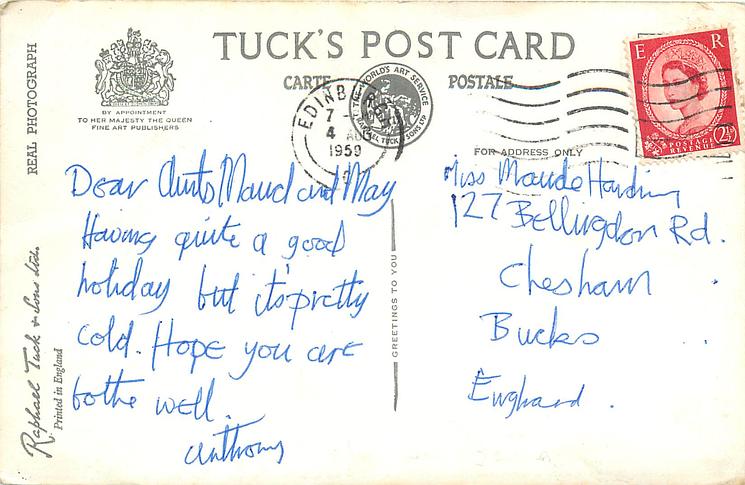 TUCK'S POST CARD
CARTE POSTALE
REAL PHOTOGRAPH
BY APPOINTMENT
TO HER MAJESTY THE QUEEN
FINE ART PUBLISHERS
THE WORLD'S ART SERVICE
RAPHAEL TUCK & SONS LTD
EDINBURGH
7 -
4 AUG
1959
E R
POSTAGE
REVENUE
2½D
FOR ADDRESS ONLY
Dear Aunts Maud and May
Having quite a good
holiday but it's pretty
cold. Hope you are
bothe well.
Anthony
GREETINGS TO YOU
Miss Maude Harding
127 Bellingdon Rd.
Chesham
Bucks
England.
Raphael Tuck & Sons Ltd.
Printed in England